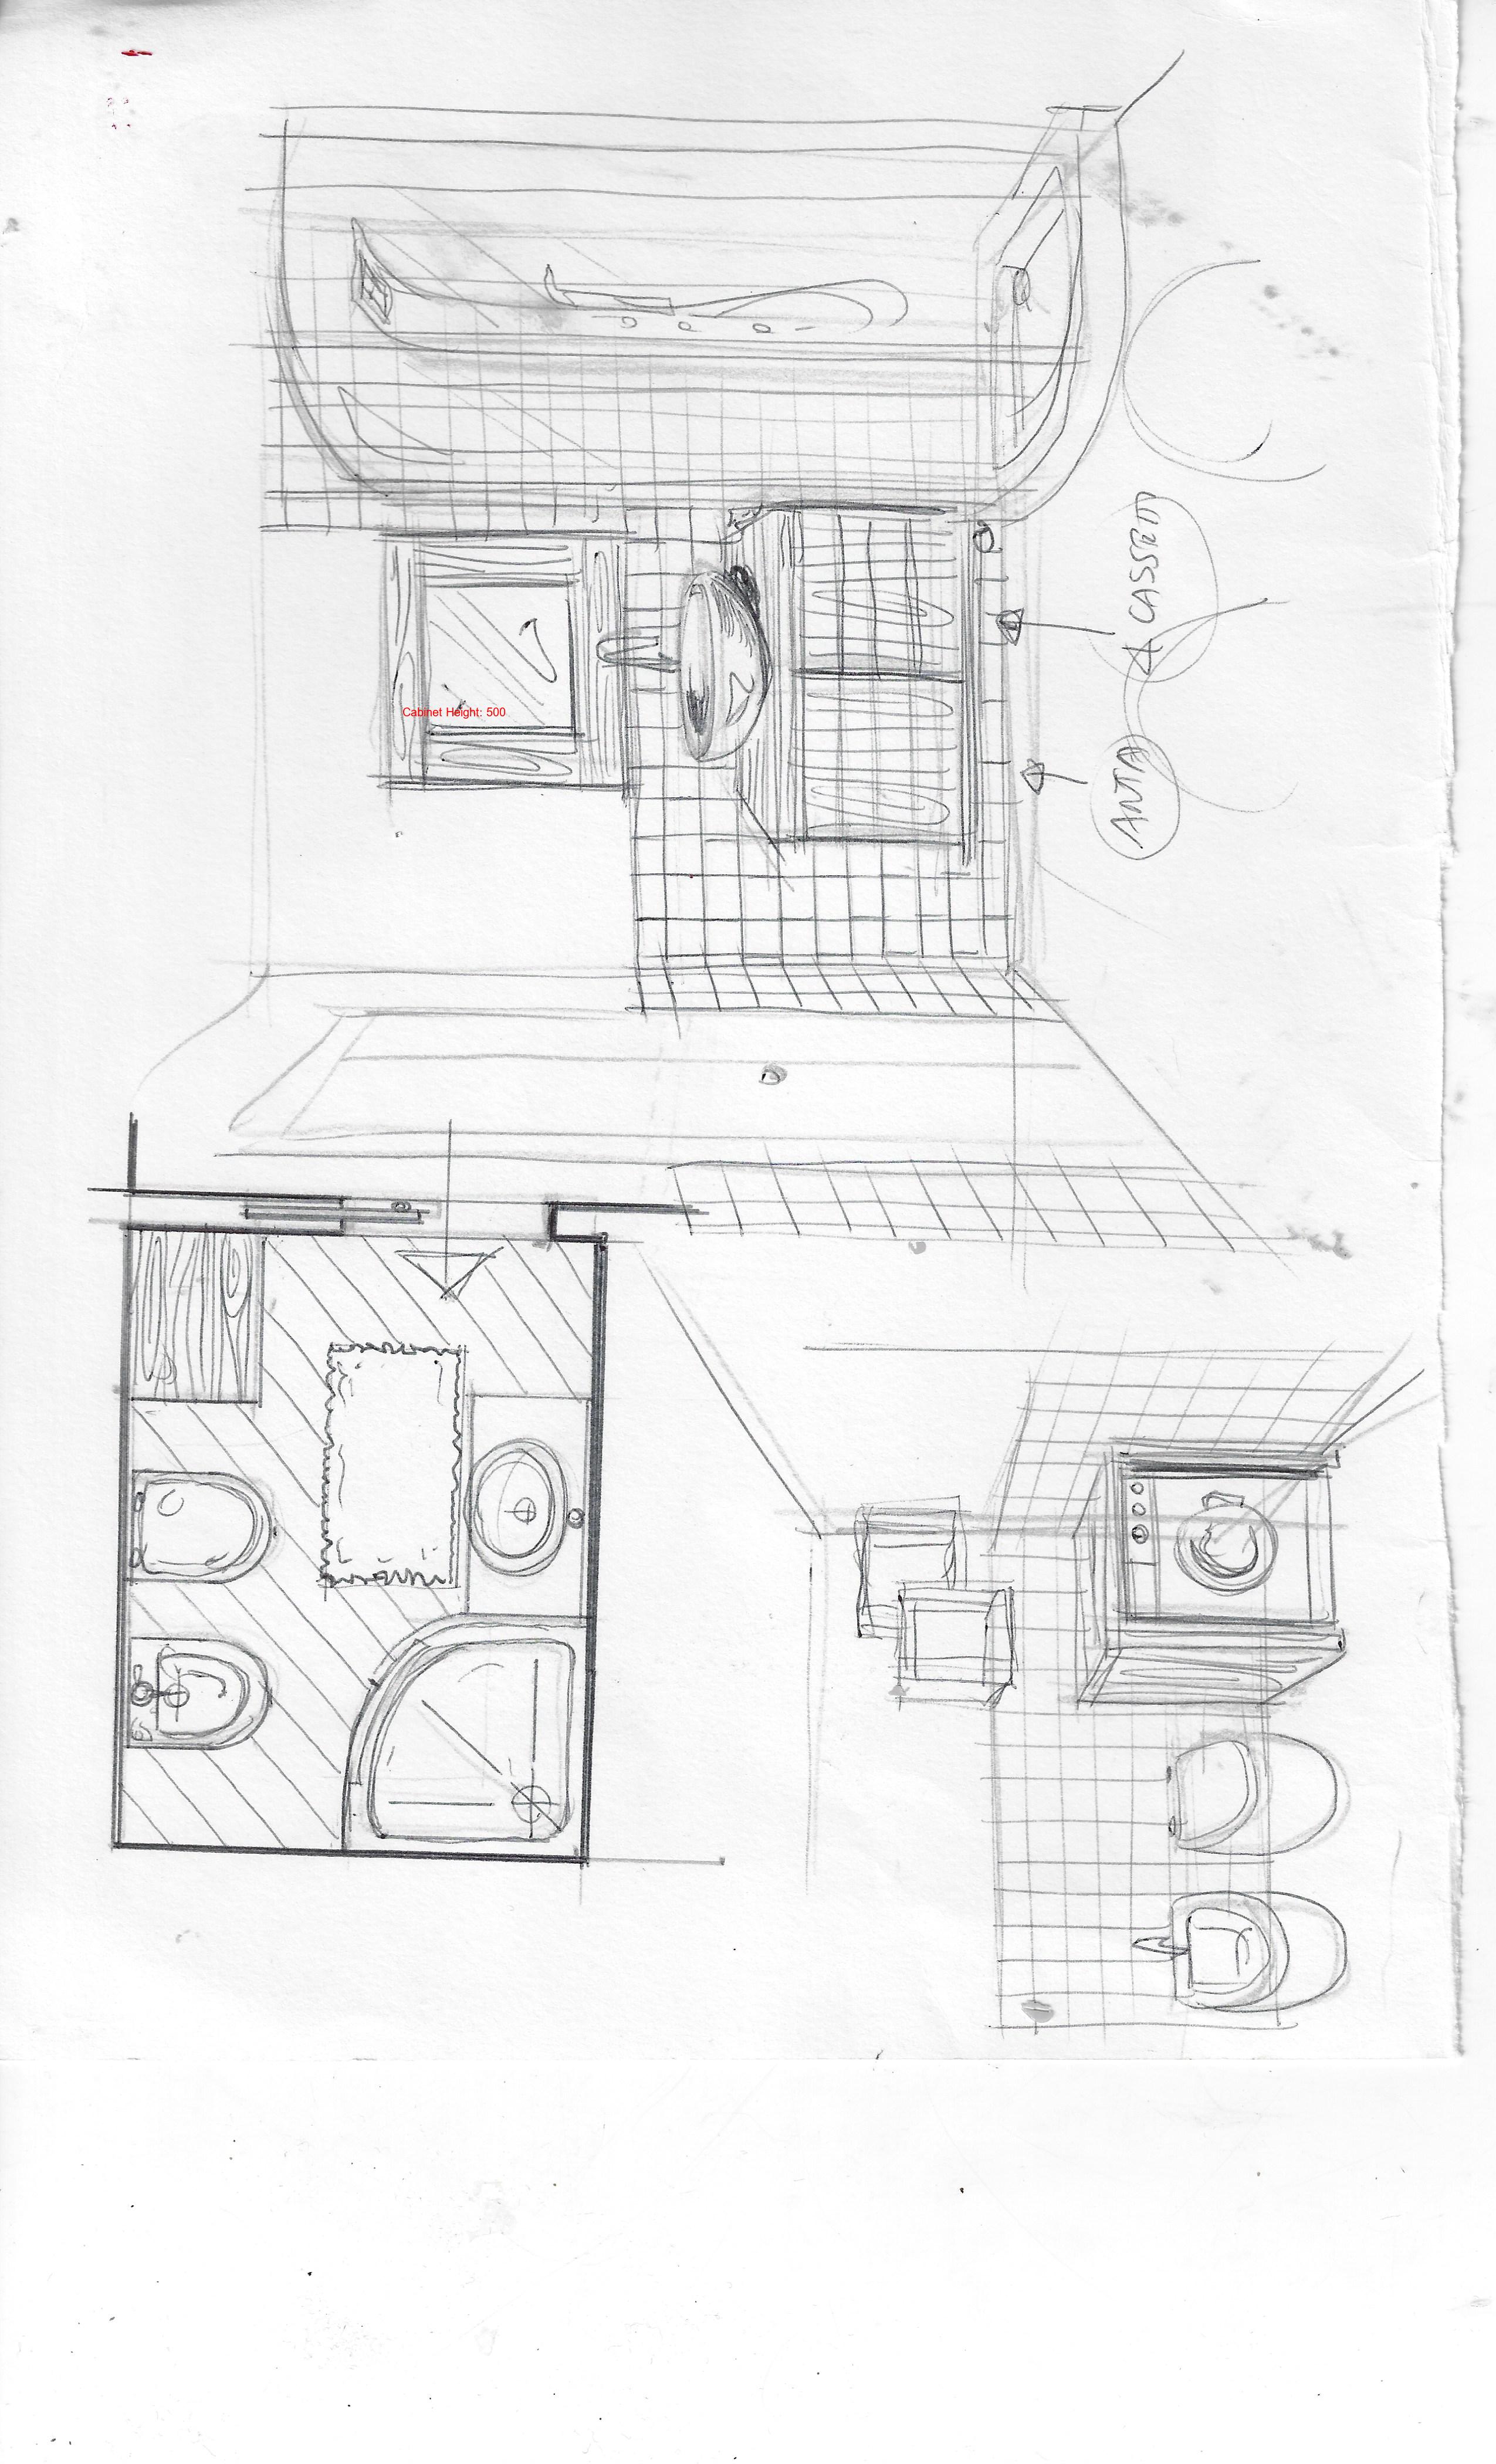 Cabinet Height: 500
ANTA
CASSETTI